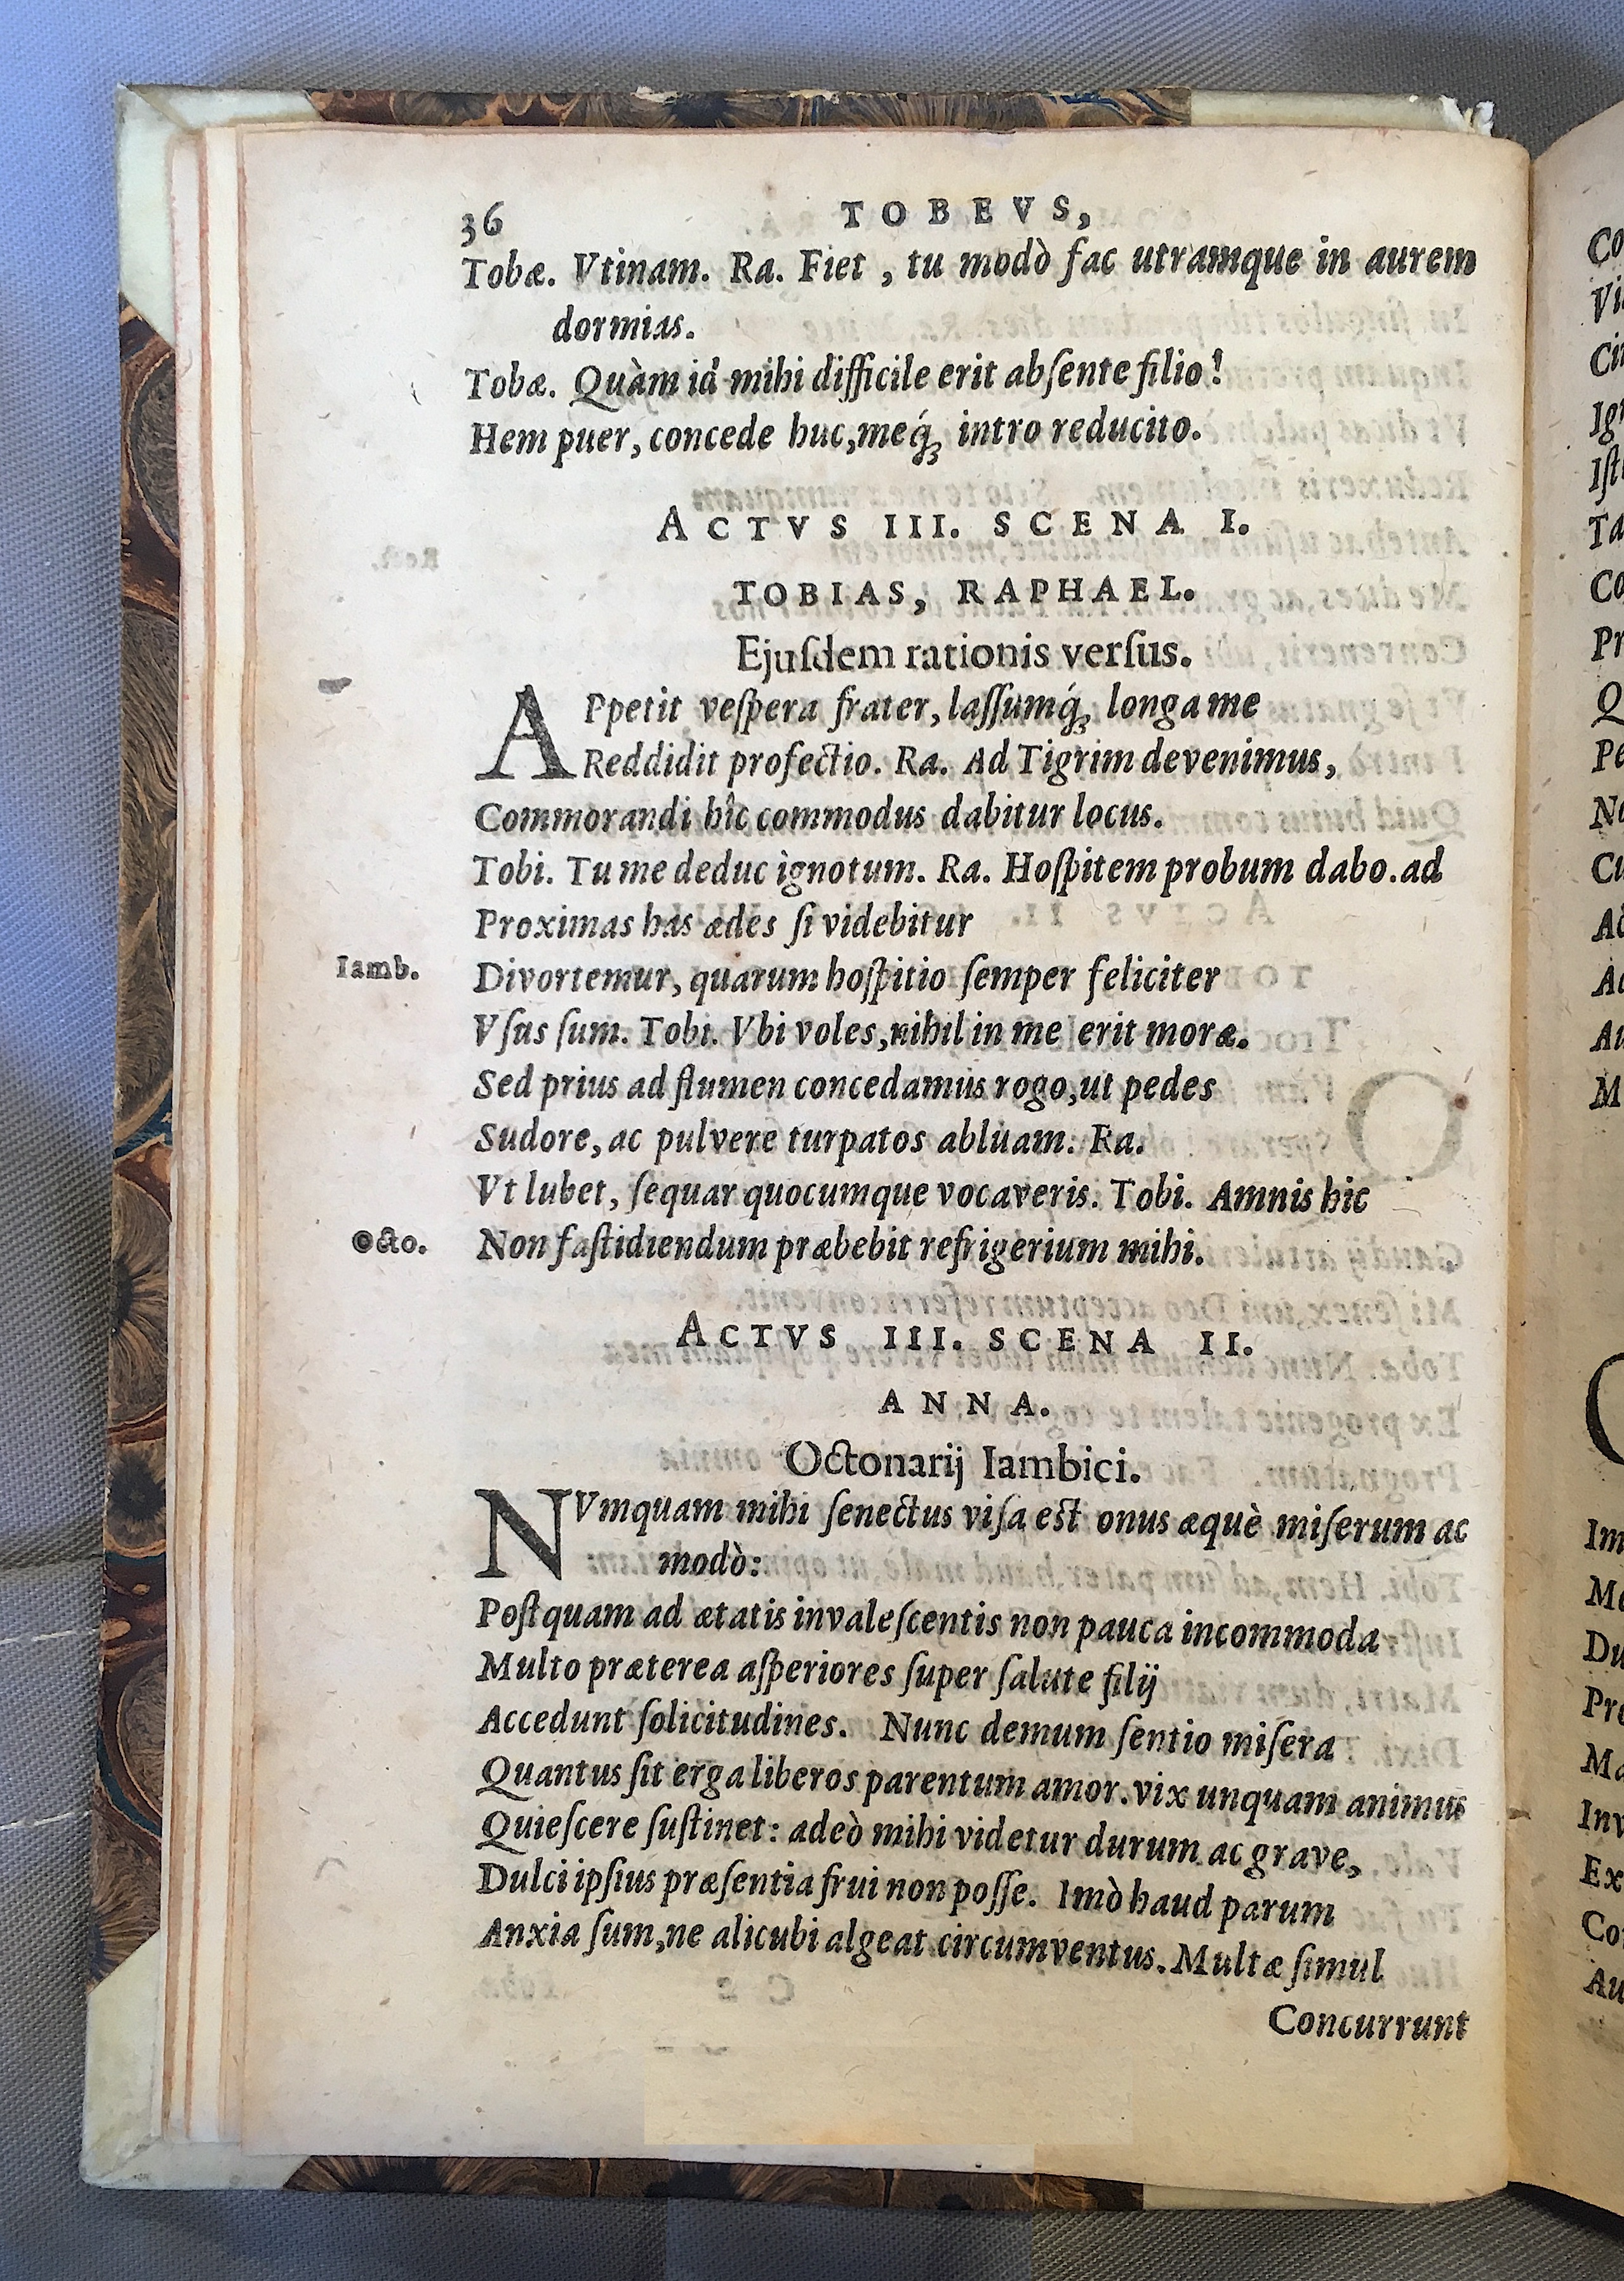 36 TOBEVS,
Tobæ. Vtinam. Ra. Fiet , tu modò fac utramque in aurem
dormias.
Tobæ. Quàm id mihi difficile erit abſente filio!
Hem puer, concede huc,meq́ꝫ intro reducito.
ACTVS III. SCENA I.
TOBIAS, RAPHAEL.
Ejuſdem rationis verſus.
APpetit veſpera frater, laſſumq́ꝫ longa me
Reddidit profectio. Ra. Ad Tigrim devenimus,
Commorandi hîc commodus dabitur locus.
Tobi. Tu me deduc ignotum. Ra. Hoſpitem probum dabo.ad
Proximas has ædes ſi videbitur
Iamb. Divortemur, quarum hoſpitio ſemper feliciter
Vſus ſum. Tobi. Vbi voles,nihil in me erit moræ.
Sed prius ad flumen concedamus rogo,ut pedes
Sudore, ac pulvere turpatos abluam. Ra.
Vt lubet, ſequar quocumque vocaveris. Tobi. Amnis hic
Octo. Non faſtidiendum præbebit refrigerium mihi.
ACTVS III. SCENA II.
ANNA.
Octonarij Iambici.
NVmquam mihi ſenectus viſa est onus æquè miſerum ac
modò:
Poſtquam ad ætatis invaleſcentis non pauca incommoda
Multo præterea aſperiores ſuper ſalute filij
Accedunt ſolicitudines. Nunc demum ſentio miſera
Quantus ſit erga liberos parentum amor.vix unquam animus
Quieſcere ſuſtinet: adeò mihi videtur durum ac grave,
Dulci ipſius præſentia frui non poſſe. Imò haud parum
Anxia ſum,ne alicubi algeat circumventus. Multæ ſimul
Concurrunt